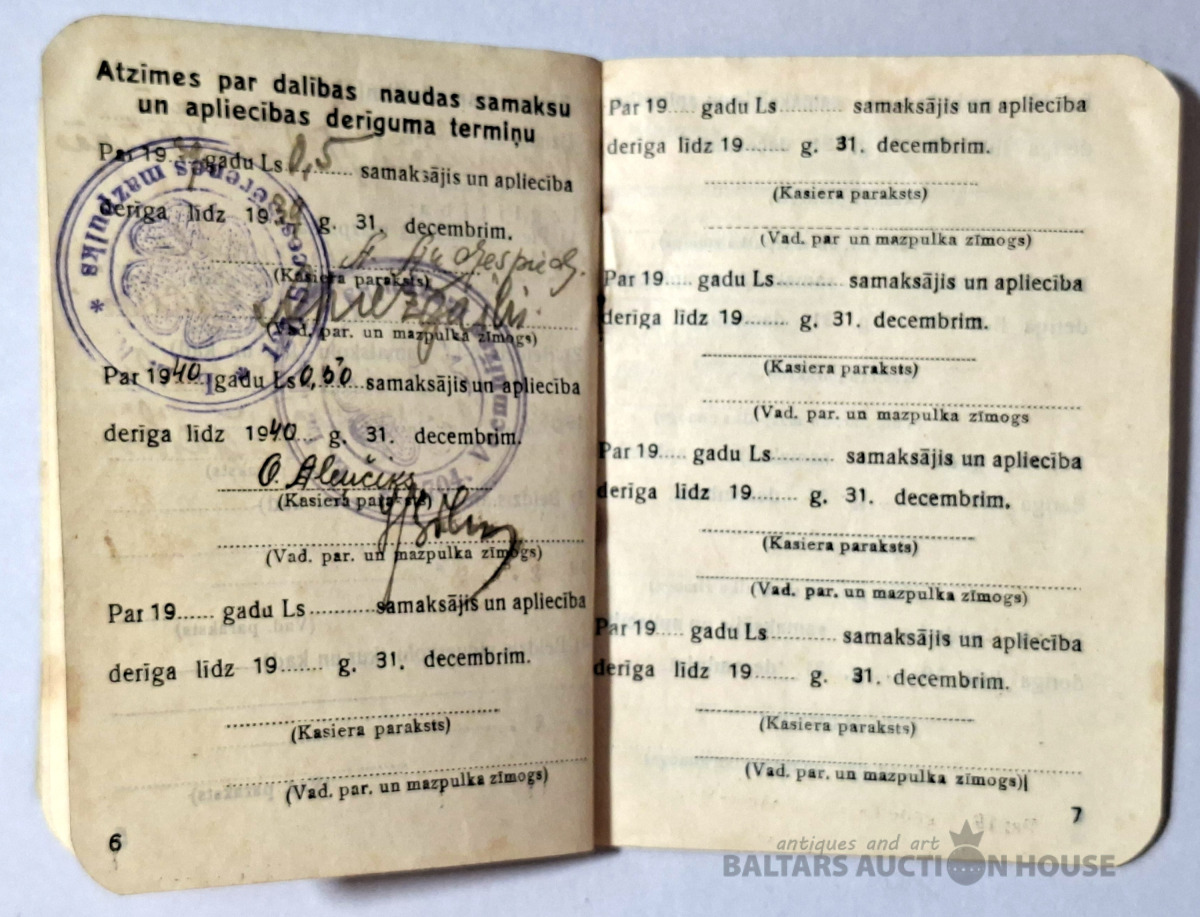 Atzīmes par dalības naudas samaksu
un apliecības derīguma termiņu
Par 19 gadu Ls 0,5 samaksājis un apliecība
derīga līdz 19 g. 31. decembrim.
(Kasiera paraksts)
(Vad. par. un mazpulka zīmogs)
Par 1940 gadu Ls 0,50 samaksājis un apliecība
derīga līdz 1940 g. 31. decembrim.
O. Alenčiks
(Kasiera paraksts)
(Vad. par. un mazpulka zīmogs)
Par 19...... gadu Ls .......... samaksājis un apliecība
derīga līdz 19....... g. 31. decembrim.
(Kasiera paraksts)
(Vad. par. un mazpulka zīmogs)
6
mazpulks
704.
Par 19..... gadu Ls.......... samaksājis un apliecība
derīga līdz 19....... g. 31. decembrim.
(Kasiera paraksts)
(Vad. par un mazpulka zīmogs)
Par 19..... gadu Ls.......... samaksājis un apliecība
derīga līdz 19....... g. 31. decembrim.
(Kasiera paraksts)
(Vad. par. un mazpulka zīmogs
Par 19..... gadu Ls.......... samaksājis un apliecība
derīga līdz 19....... g. 31. decembrim.
(Kasiera paraksts)
(Vad. par. un mazpulka zīmogs)
Par 19..... gadu Ls.......... samaksājis un apliecība
derīga līdz 19....... g. 31. decembrim.
(Kasiera paraksts)
(Vad. par. un mazpulka zīmogs)
7
antiques and art
BALTARS AUCTION HOUSE